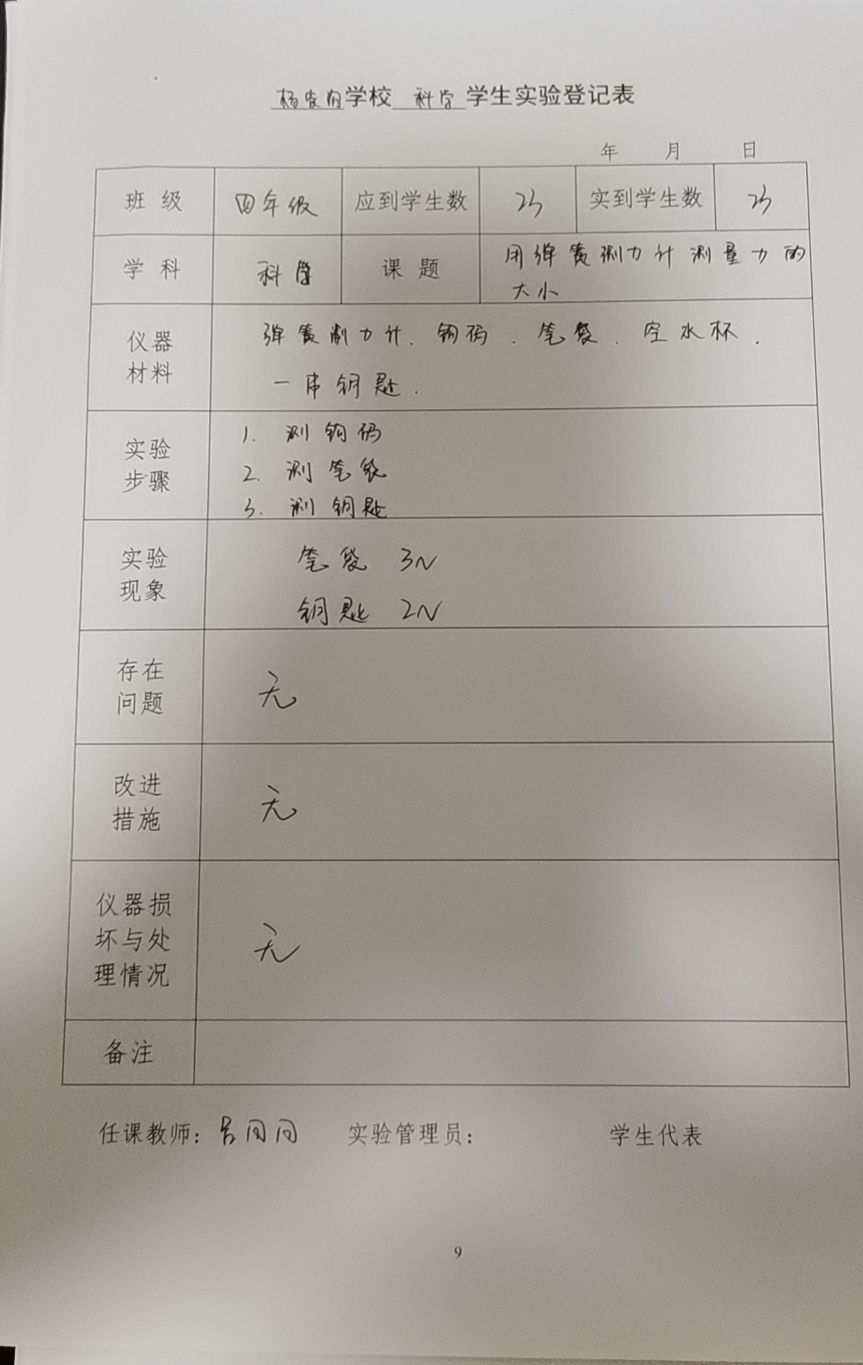 学校 科学 学生实验登记表
年 月 日
班级 四年级 应到学生数 23 实到学生数 23
学科 科学 课题 用弹簧测力计测量力的
大小
仪器
材料
弹簧测力计、钩码、笔袋、空水杯、
一串钥匙.
实验
步骤
1. 测钩码
2. 测笔袋
3. 测钥匙
实验
现象
笔袋 3N
钥匙 2N
存在
问题
无
改进
措施
无
仪器损
坏与处
理情况
无
备注
任课教师: 实验管理员: 学生代表
9